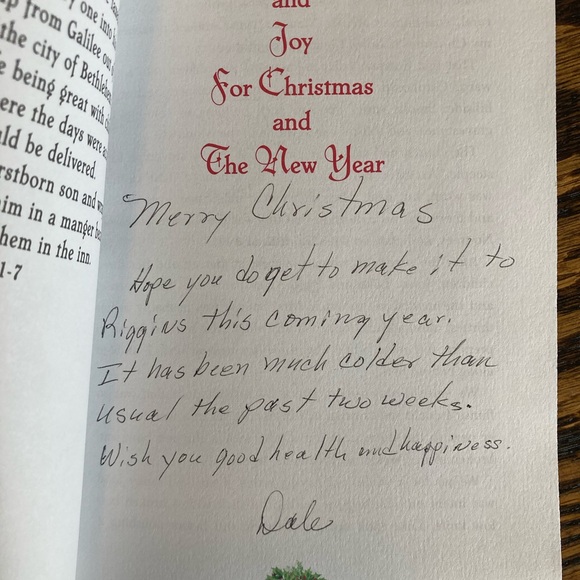 one into
p from Galilee
the city of Bethlehem
being great with
ere the days were
uld be delivered.
rstborn son and
im in a manger
hem in the inn.
1-7
and
Joy
For Christmas
and
The New Year
Merry Christmas
Hope you do get to make it to
Riggins this coming year.
It has been much colder than
usual the past two weeks.
Wish you good health and happiness.
Dale